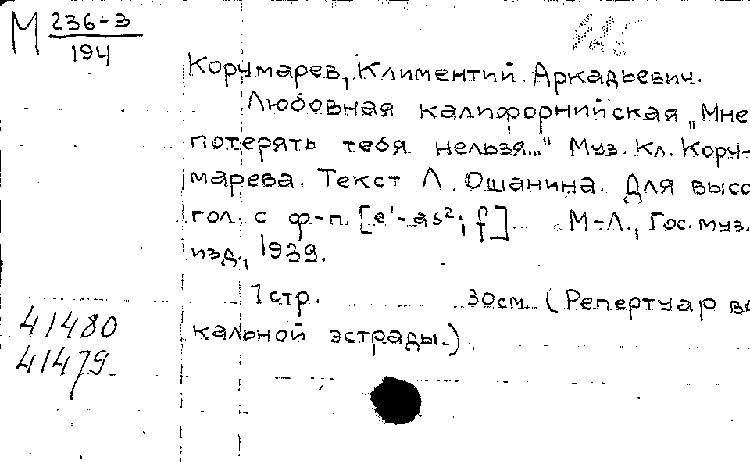 М 236-3
194
Корчмарев, Климентий Аркадьевич.
Любовная калифорнийская „Мне
потерять тебя нельзя..." Муз. Кл. Корч-
марева. Текст Л. Ошанина. Для высо
гол. с ф-п. [e'-as²; f] М-Л., Гос. муз.
изд., 1939.
7 стр. 30см. (Репертуар во
кальной эстрады.)
41480
41479